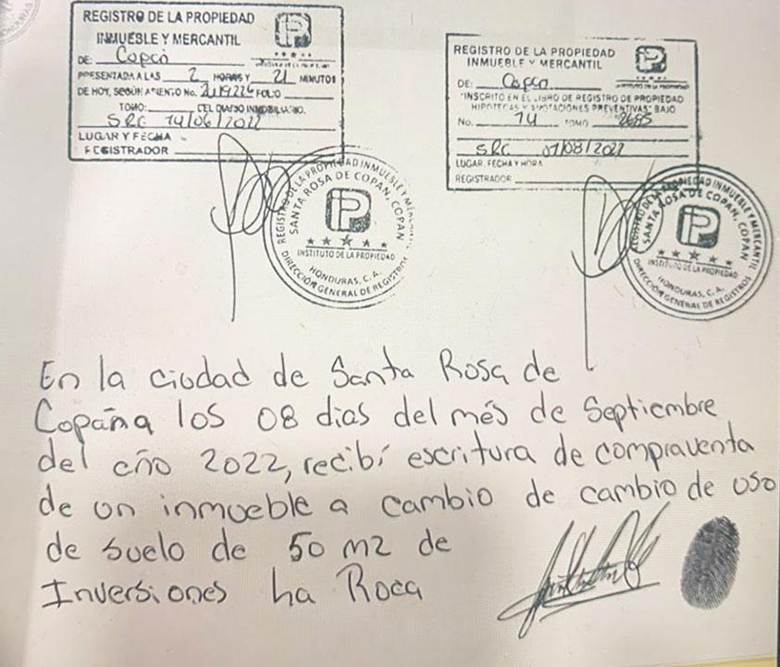 REGISTRO DE LA PROPIEDAD
INMUEBLE Y MERCANTIL
DE: Copán
PRESENTADA A LAS 2 HORAS Y 21 MINUTOS
DE HOY, SEGÚN ASIENTO No. FOLIO
TOMO: DEL DIARIO INMOBILIARIO.
SRC 14/06/2022
LUGAR Y FECHA
REGISTRADOR
REGISTRO DE LA PROPIEDAD
INMUEBLE Y MERCANTIL
DE: Copán
"INSCRITO EN EL LIBRO DE REGISTRO DE PROPIEDAD
HIPOTECAS Y ANOTACIONES PREVENTIVAS" BAJO
No. 74 TOMO 2685
SRC 07/08/2022
LUGAR, FECHA Y HORA
REGISTRADOR
REGISTRO DE LA PROPIEDAD INMUEBLE Y MERCANTIL
SANTA ROSA DE COPAN, COPAN
IP
INSTITUTO DE LA PROPIEDAD
HONDURAS, C.A.
DIRECCIÓN GENERAL DE REGISTROS
SANTA ROSA DE COPAN, COPAN
IP
INSTITUTO DE LA PROPIEDAD
HONDURAS, C.A.
DIRECCIÓN GENERAL DE REGISTROS
En la ciudad de Santa Rosa de
Copán a los 08 dias del més de Septiembre
del año 2022, recibí escritura de compraventa
de un inmueble a cambio de cambio de uso
de suelo de 50 m2 de
Inversiones La Roca